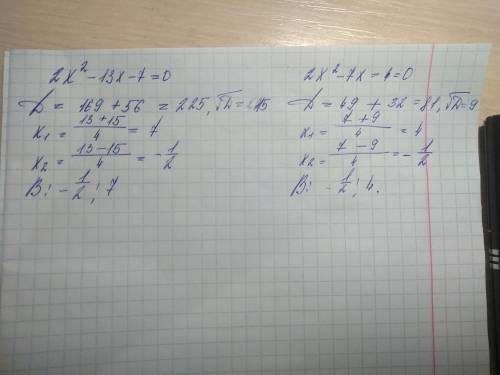 2x² - 13x - 7 = 0
D = 169 + 56 = 225, √D = 15
x₁ = (13 + 15)/4 = 7
x₂ = (13 - 15)/4 = -1/2
В: -1/2; 7
2x² - 7x - 4 = 0
D = 49 + 32 = 81, √D = 9
x₁ = (7 + 9)/4 = 4
x₂ = (7 - 9)/4 = -1/2
В: -1/2; 4.